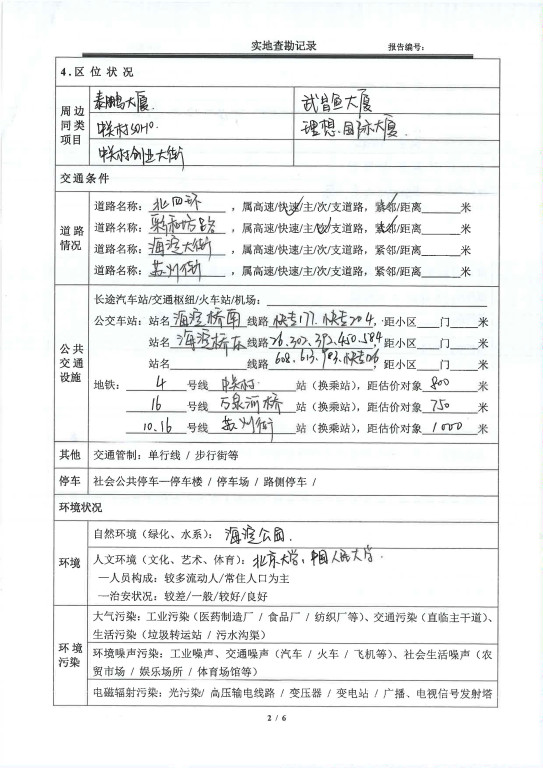 实地查勘记录 报告编号：
4.区 位 状 况
周边同类项目
泰鹏大厦 武昌鱼大厦
中关村SOHO. 理想国际大厦
中关村创业大街
交通条件
道路情况
道路名称：北四环，属高速/快速/主/次/支道路，紧邻/距离____米
道路名称：彩和坊路，属高速/快速/主/次/支道路，紧邻/距离____米
道路名称：海淀大街，属高速/快速/主/次/支道路，紧邻/距离____米
道路名称：苏州街，属高速/快速/主/次/支道路，紧邻/距离____米
公共交通设施
长途汽车站/交通枢纽/火车站/机场：
公交车站：站名 海淀桥南 线路 快专177. 快专204，距小区___门___米
站名 海淀桥东 线路 26.302.392.450.584 距小区___门___米
站名____线路 608.613.983.快专126 距小区___门___米
地铁： 4 号线 中关村 站（换乘站），距估价对象 800 米
16 号线 万泉河桥 站（换乘站），距估价对象 750 米
10.16 号线 苏州街 站（换乘站），距估价对象 1000 米
其他 交通管制：单行线 / 步行街等
停车 社会公共停车—停车楼 / 停车场 / 路侧停车 /
环境状况
环境
自然环境（绿化、水系）： 海淀公园.
人文环境（文化、艺术、体育）：北京大学，中国人民大学.
—人员构成：较多流动人/常住人口为主
—治安状况：较差/一般/较好/良好
环境污染
大气污染：工业污染（医药制造厂 / 食品厂 / 纺织厂等）、交通污染（直临主干道）、
生活污染（垃圾转运站 / 污水沟渠）
环境噪声污染：工业噪声、交通噪声（汽车 / 火车 / 飞机等）、社会生活噪声（农
贸市场 / 娱乐场所 / 体育场馆等）
电磁辐射污染：光污染/ 高压输电线路 / 变压器 / 变电站 / 广播、电视信号发射塔
2 / 6